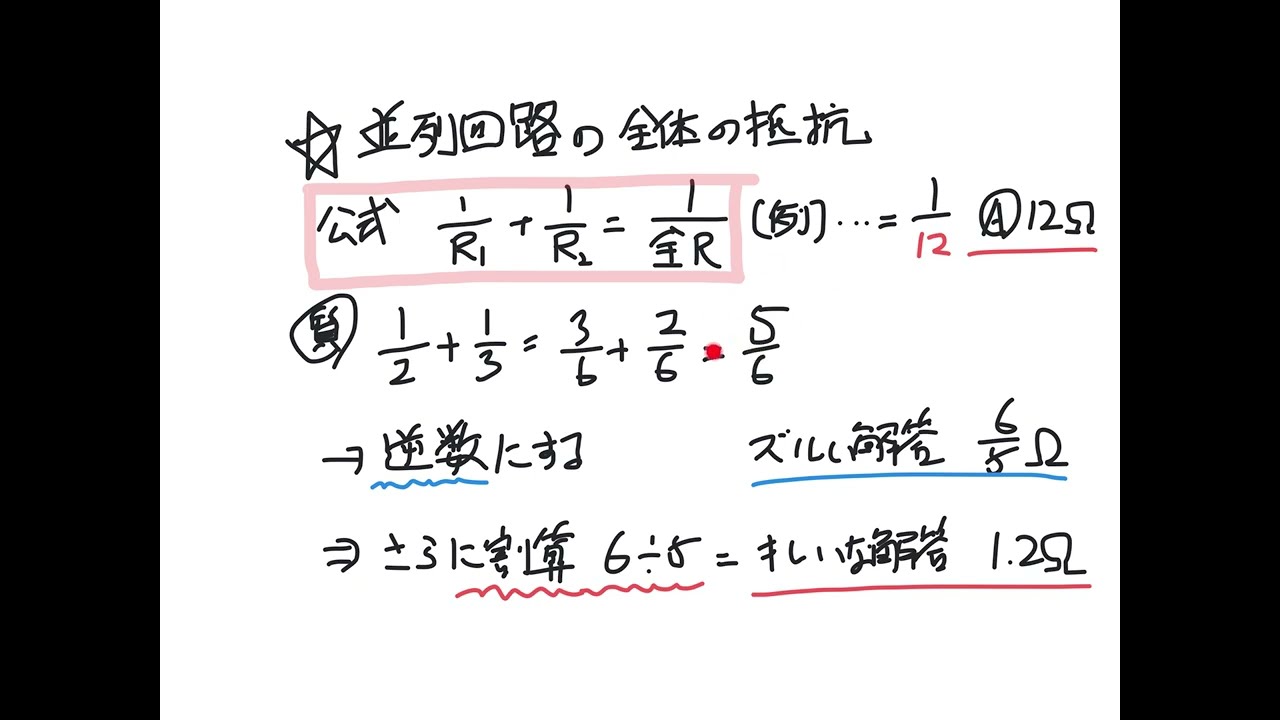 ☆並列回路の全体の抵抗
公式 1/R₁ + 1/R₂ = 1/全R (例) … = 1/12 Ⓐ12Ω
質 1/2 + 1/3 = 3/6 + 2/6 = 5/6
→逆数にする ズルい解答 6/5Ω
⇒さらに割算 6÷5 = きれいな解答 1.2Ω